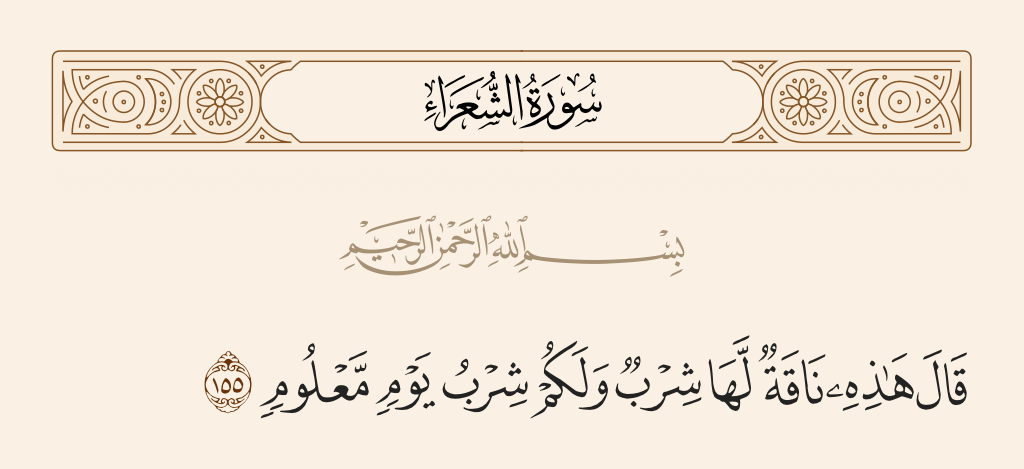 سُورَةُ الشُّعَرَاءِ
بِسْمِ ٱللَّهِ ٱلرَّحْمَٰنِ ٱلرَّحِيمِ
قَالَ هَٰذِهِۦ نَاقَةٌ لَّهَا شِرْبٌ وَلَكُمْ شِرْبُ يَوْمٍ مَّعْلُومٍ ١٥٥